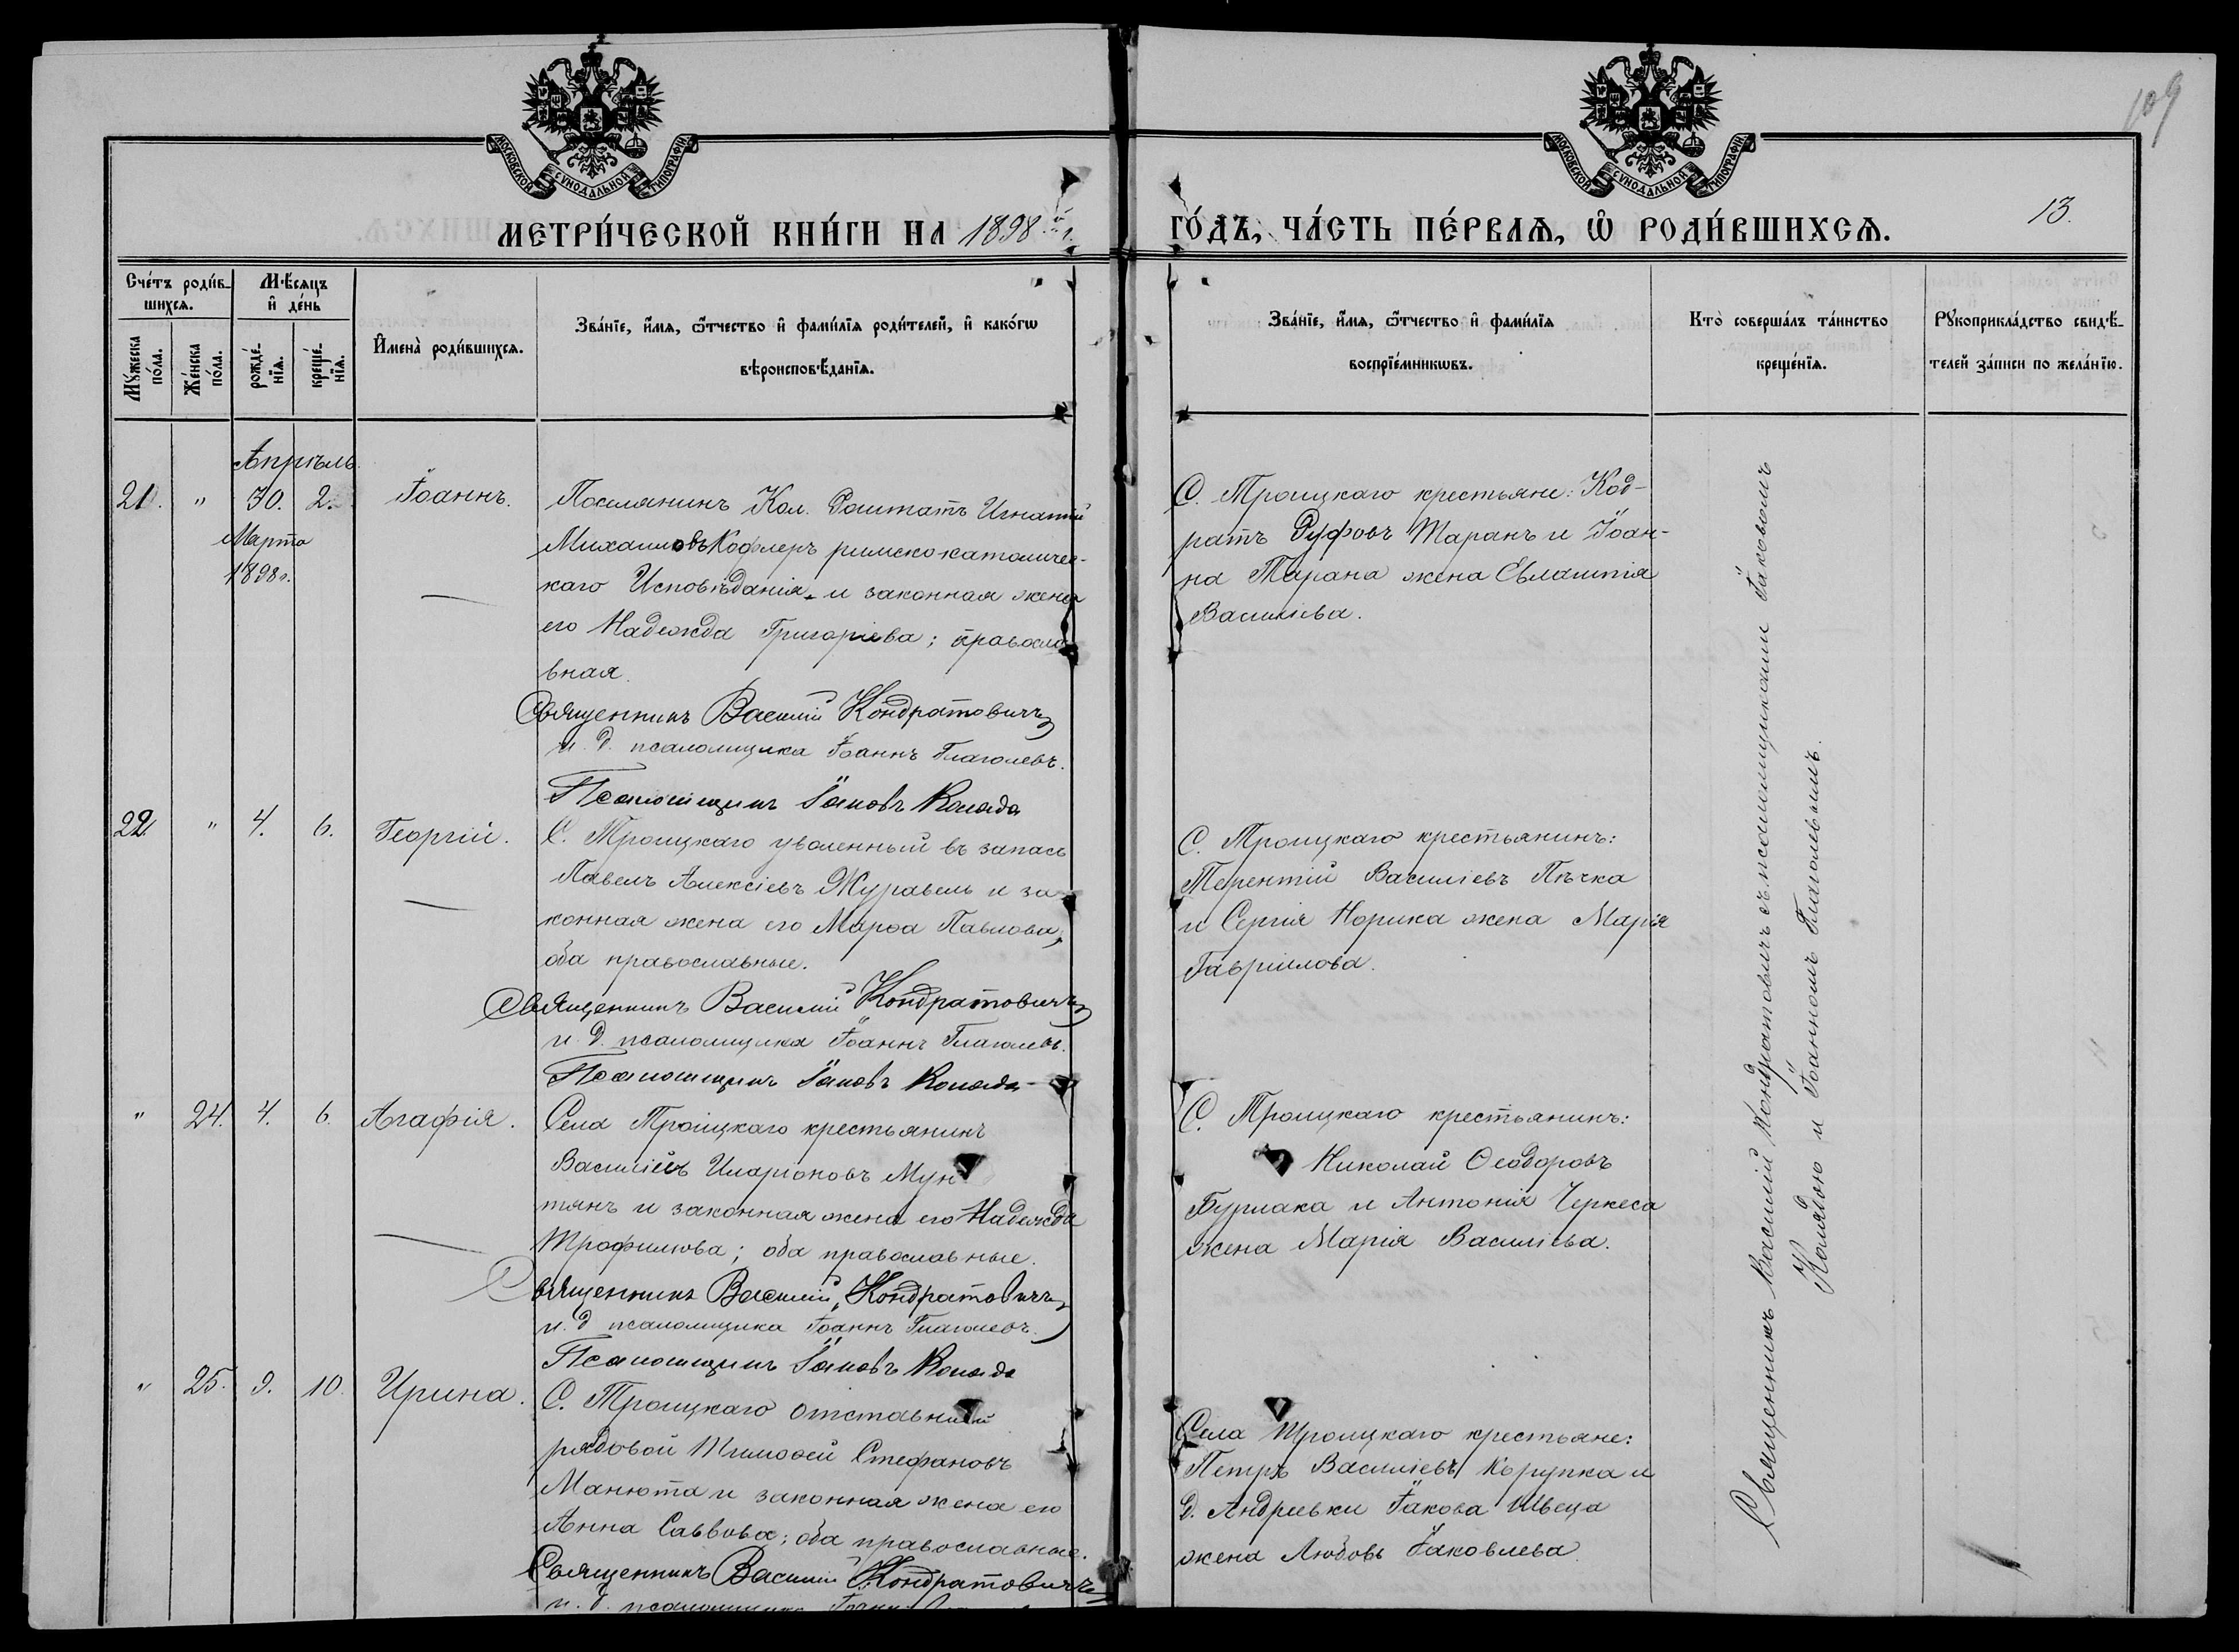 109
МОСКОВСКОЙ СѴНОДАЛЬНОЙ ТИПОГРАФІИ
МОСКОВСКОЙ СѴНОДАЛЬНОЙ ТИПОГРАФІИ
МЕТРИ́ЧЕСКОЙ КНИ́ГИ НА 1898 й г.
ГО́ДЪ, ЧА́СТЬ ПЕ́РВАѦ, Ѡ҆ РОДИ́ВШИХСѦ.
13.
Сче́тъ роди́в-
шихсѧ.
Мѣ́сѧцъ
и҆ де́нь
Мꙋ́жеска
по́ла.
Же́нска
по́ла.
рожде́-
нїѧ.
креще́-
нїѧ.
И҆мена̀ роди́вшихсѧ.
Зва́нїе, и҆́мѧ, ѻ҆́тчество и҆ фами́лїѧ роди́телей, и҆ како́гѡ
вѣроисповѣ́данїѧ.
Зва́нїе, и҆́мѧ, ѻ҆́тчество и҆ фами́лїѧ
воспрїе́мникѡвъ.
Кто̀ соверша́лъ та́инство
креще́нїѧ.
Рꙋкоприкла́дство свидѣ́-
телей за́писи по жела́нїю.
Апрѣль
21. " 30. 2. Іоаннъ.
Марта
1898 г.
Поселянинъ Кол. Раштатъ Игнатій
Михаиловъ Кофлеръ римскокатоличес-
каго Исповѣданія и законная жена
его Надежда Григоріева; правосла-
вная.
Священникъ Василій Кондратовичъ
и. д. псаломщика Іоаннъ Глаголевъ.
Псаломщикъ Іаковъ Коляда
С. Троицкаго крестьяне: Код-
ратъ Руфовъ Таранъ и Іоан-
на Тарана жена Евлампія
Василіева.
22 " 4. 6. Георгій.
С. Троицкаго уволенный въ запасъ
Павелъ Алексіевъ Журавель и за-
конная жена его Марѳа Павлова,
оба православные.
Священникъ Василій Кондратовичъ
и. д. псаломщика Іоаннъ Глаголевъ.
Псаломщикъ Іаковъ Коляда
С. Троицкаго крестьянинъ:
Терентій Василіевъ Пѣчка
и Сергія Норика жена Марія
Гавріилова.
" 24. 4. 6. Агафія.
Села Троицкаго крестьянинъ
Василій Иларіоновъ Мун
тянъ и законная жена его Надежда
Трофимова; оба православные.
Священникъ Василій Кондратовичъ
и. д. псаломщика Іоаннъ Глаголевъ.
Псаломщикъ Іаковъ Коляда
С. Троицкаго крестьянинъ:
Николай Ѳеодоровъ
Бурлака и Антонія Черкеса
жена Марія Василіева.
" 25. 9. 10. Ирина.
С. Троицкаго отставный
рядовой Тимоѳей Стефановъ
Манюта и законная жена его
Анна Саввова; оба православные.
Священникъ Василій Кондратовичъ
и. д. псаломщика
Села Троицкаго крестьяне:
Петръ Василіевъ Крупка и
д. Андреевки Іакова Швеца
жена Любовь Іаковлева.
Священникъ Василій Кондратовичъ съ псаломщиками Іаковомъ
Колядою и Іоанномъ Глаголевымъ.